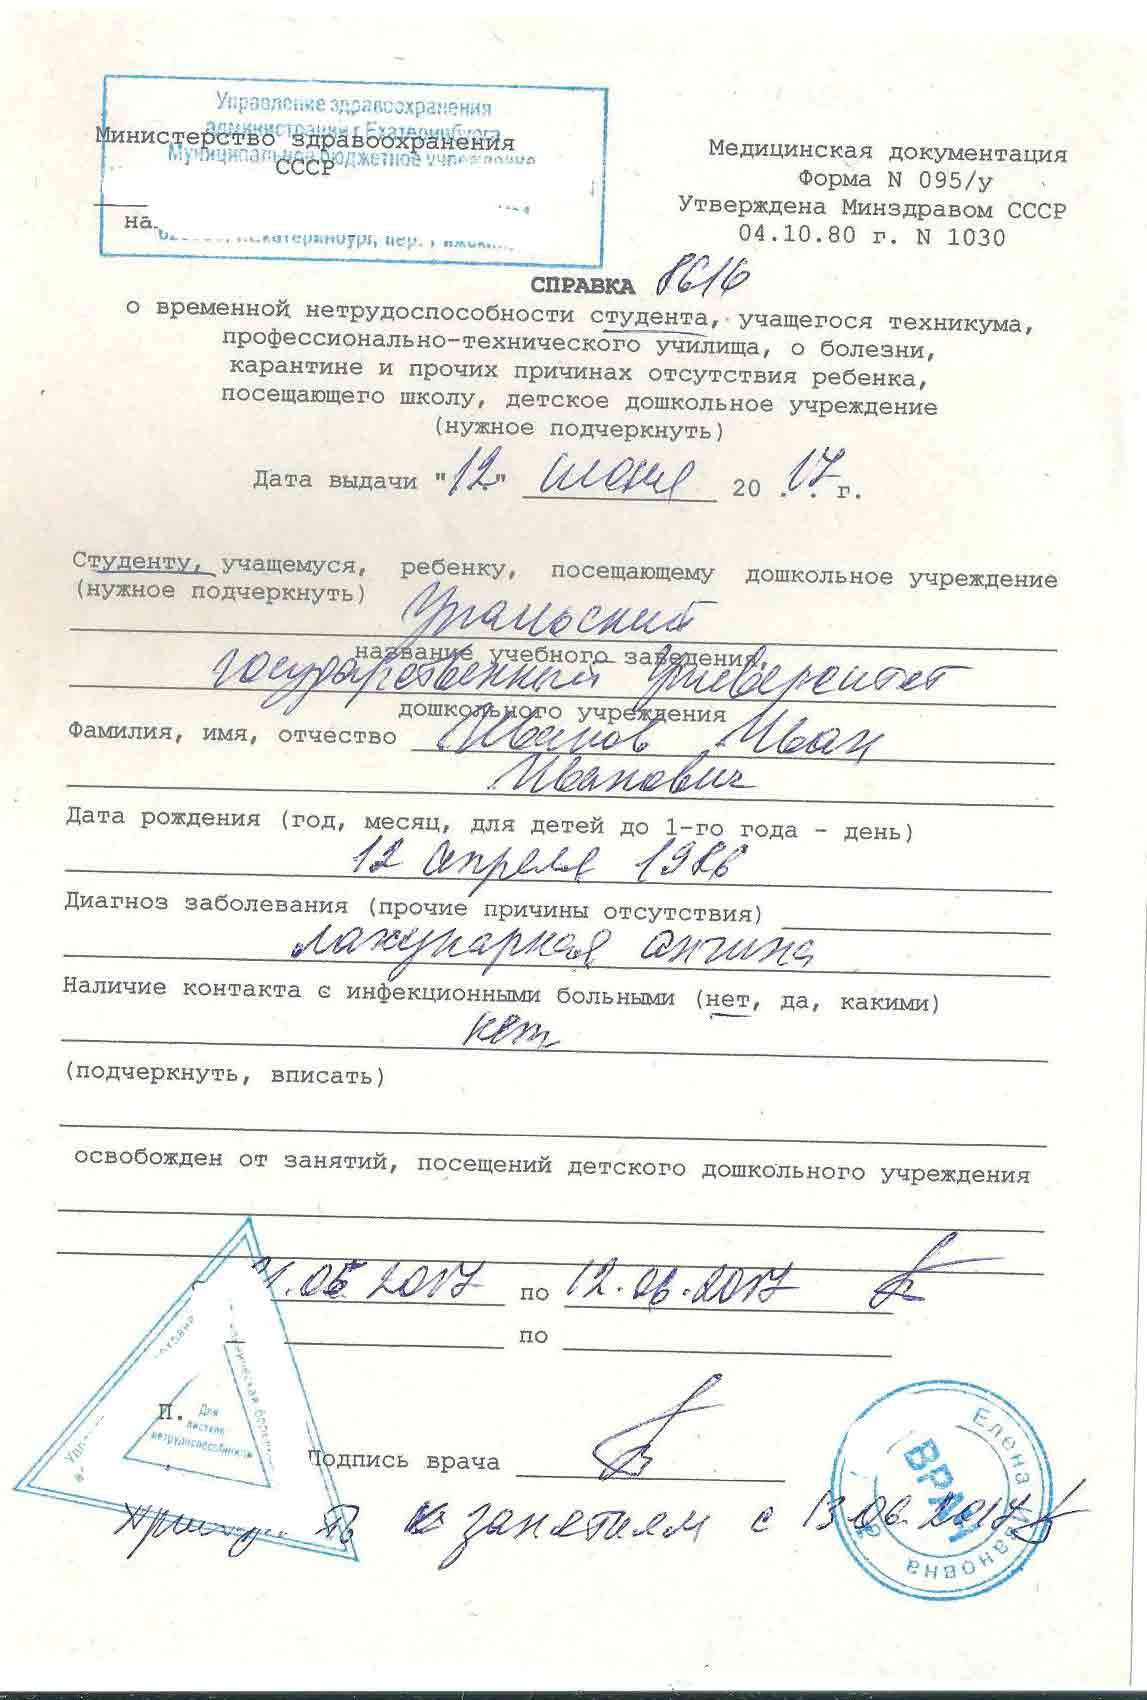 Управление здравоохранения
администрации г.Екатеринбурга
Муниципальное бюджетное учреждение
Министерство здравоохранения
СССР
на
Екатеринбург, пер.
Медицинская документация
Форма N 095/у
Утверждена Минздравом СССР
04.10.80 г. N 1030
СПРАВКА 8616
о временной нетрудоспособности студента, учащегося техникума,
профессионально-технического училища, о болезни,
карантине и прочих причинах отсутствия ребенка,
посещающего школу, детское дошкольное учреждение
(нужное подчеркнуть)
Дата выдачи "12" июня 20 17 г.
Студенту, учащемуся, ребенку, посещающему дошкольное учреждение
(нужное подчеркнуть)
Уральский
название учебного заведения,
государственный Университет
дошкольного учреждения
Фамилия, имя, отчество Иванов Иван
Иванович
Дата рождения (год, месяц, для детей до 1-го года - день)
12 апреля 1986
Диагноз заболевания (прочие причины отсутствия)
лакунарная ангина
Наличие контакта с инфекционными больными (нет, да, какими)
нет
(подчеркнуть, вписать)
освобожден от занятий, посещений детского дошкольного учреждения
2017 по 12.06.2017
по
Для
листков
нетрудоспособности
П.
Подпись врача
Елена Ивановна
ВРАЧ
к занятиям с 13.06.2017